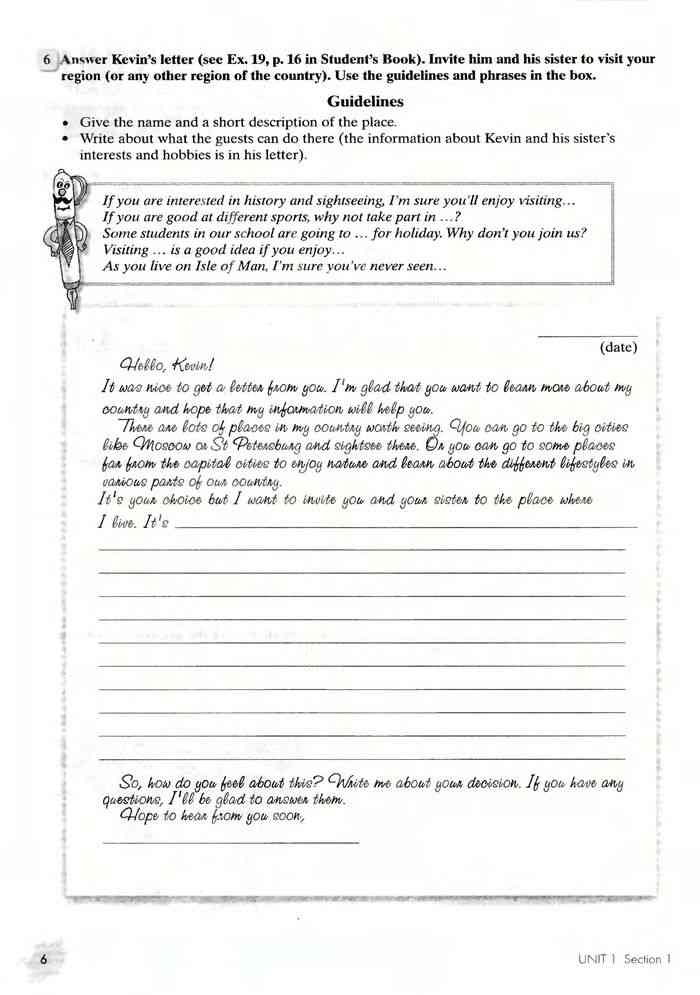 6 Answer Kevin's letter (see Ex. 19, p. 16 in Student's Book). Invite him and his sister to visit your
region (or any other region of the country). Use the guidelines and phrases in the box.
Guidelines
• Give the name and a short description of the place.
• Write about what the guests can do there (the information about Kevin and his sister's
interests and hobbies is in his letter).
If you are interested in history and sightseeing, I'm sure you'll enjoy visiting...
If you are good at different sports, why not take part in ...?
Some students in our school are going to ... for holiday. Why don't you join us?
Visiting ... is a good idea if you enjoy...
As you live on Isle of Man, I'm sure you've never seen...
(date)
Hello, Kevin!
It was nice to get a letter from you. I'm glad that you want to learn more about my
country and hope that my information will help you.
There are lots of places in my country worth seeing. You can go to the big cities
like Moscow or St Petersburg and sightsee there. Or you can go to some places
far from the capital cities to enjoy nature and learn about the different lifestyles in
various parts of our country.
It's your choice but I want to invite you and your sister to the place where
I live. It's
So, how do you feel about this? Write me about your decision. If you have any
questions, I'll be glad to answer them.
Hope to hear from you soon,
6
UNIT 1 Section 1